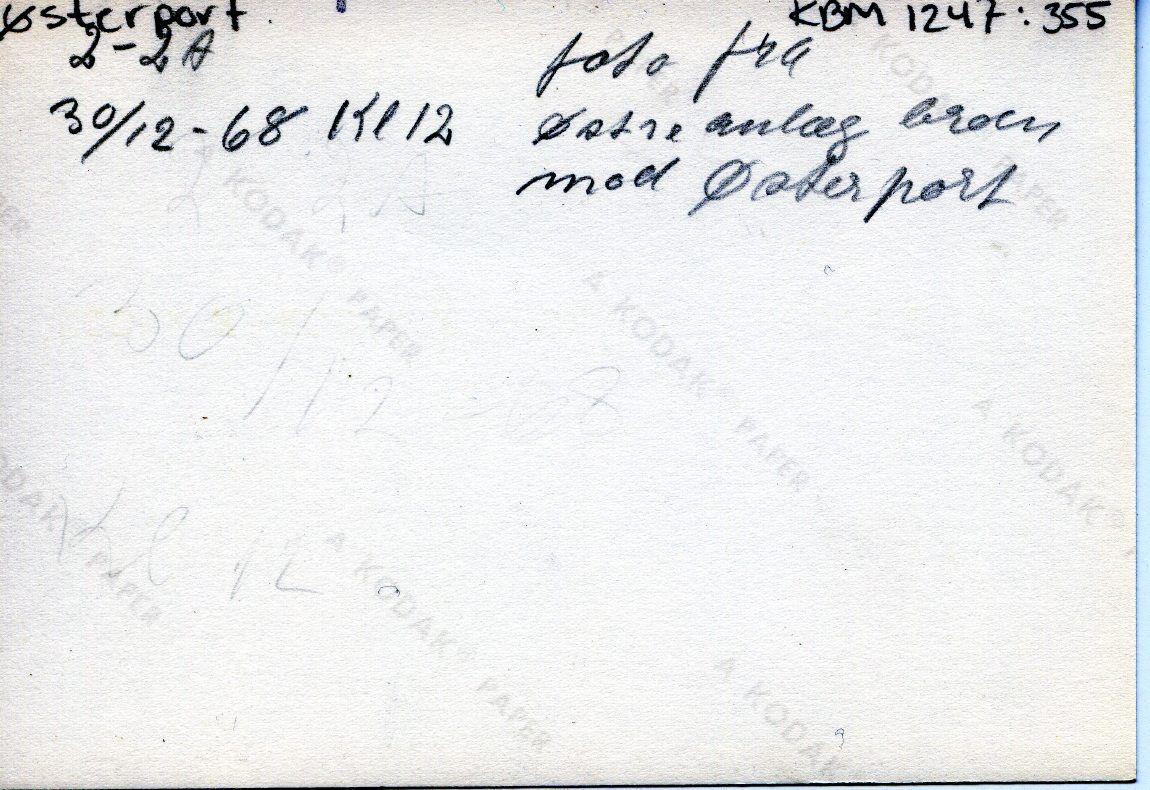 Østerport. KBM 1247:355
2-2A
foto fra
30/12-68 Kl 12
Østre anlæg broen
mod Østerport
2 2A
30/12 - 68
Kl 12
A KODAK® PAPER
A KODAK® PAPER
A KODAK® PAPER
A KODAK®
A KODAK